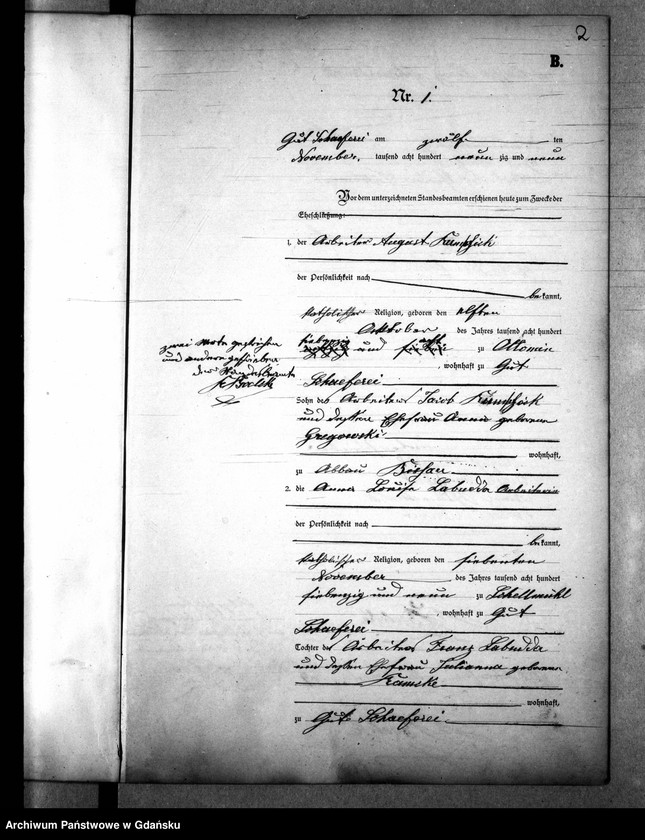 2
B.
Nr. 1.
Gut Schaeferei am zwölf ten
November, tausend acht hundert neun zig und neun
Vor dem unterzeichneten Standesbeamten erschienen heute zum Zwecke der
Eheschließung:
1. der Arbeiter August
der Persönlichkeit nach
bekannt,
katholischer Religion, geboren den elften
Oktober des Jahres tausend acht hundert
siebenzig acht
und zu Ottomin
, wohnhaft zu Gut
Schaeferei
zwei Worte gestrichen
und andere geschrieben
Der Standesbeamte
Sohn des Arbeiters Jacob
und dessen Ehefrau Anna geborene
Gregowski
wohnhaft,
zu Abbau Bissau
2. die Anna Louise Labudda Arbeiterin
der Persönlichkeit nach
bekannt,
katholischer Religion, geboren den siebenten
November des Jahres tausend acht hundert
siebenzig und neun zu Schellmühl
, wohnhaft zu Gut
Schaeferei
Tochter des Arbeiters Franz Labudda
und dessen Ehefrau Julianna geborene
Kamske
wohnhaft,
zu Gut Schaeferei
Archiwum Państwowe w Gdańsku